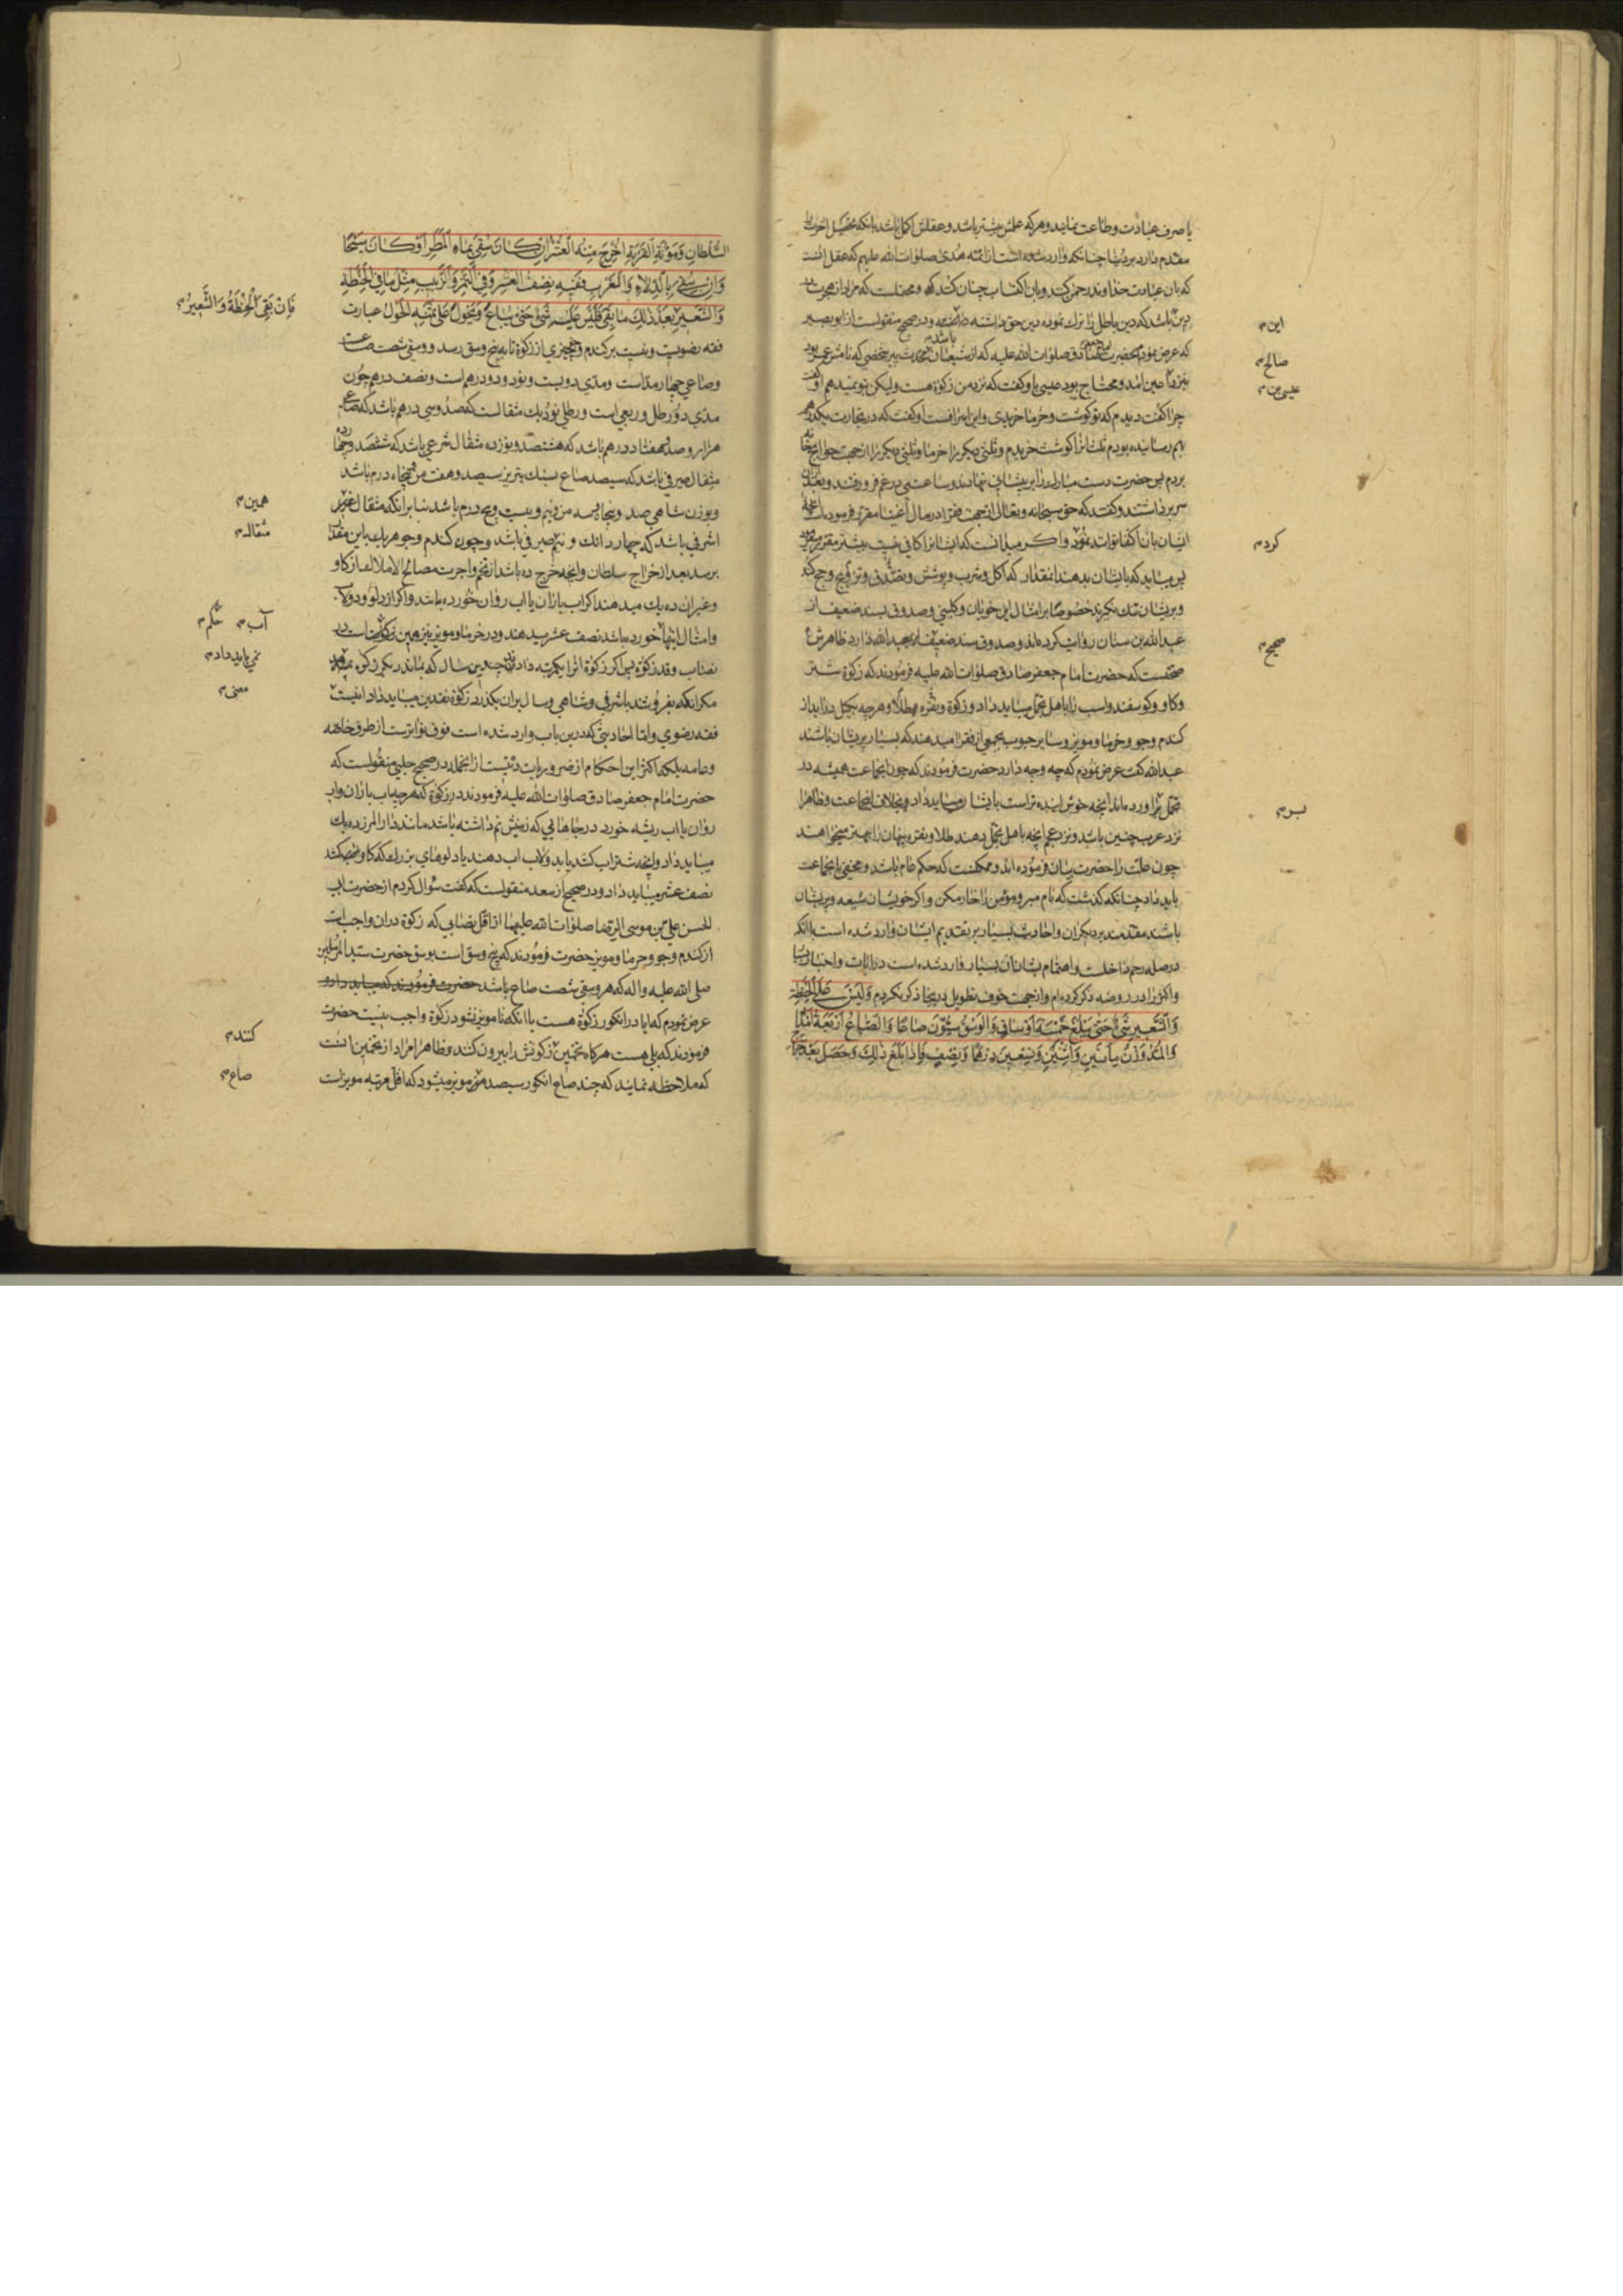 یا صرف عبادت و طاعت نمایند و هر که علمش بیشتر باشد و عقلش اکمل باشد بانکه تحصیل اخرت را
مقدم دارد بر دنیا چنانکه وارد شده است از ائمه هدی صلوات الله علیهم که عقل انست
که بان عبادت خداوند رحمن کنند و بان اکتساب جنان کنند و محتملست که مراد از هجرت در
دین باشد که دین باطل را ترک نموده دین حق داشته باشد و در صحیح منقولست از ابو بصیر
که عرض نمودم بحضرت امام جعفر صادق صلوات الله علیه که از شیعیان پیر شخصی که نامش عمر بود
بنزد امد و محتاج بود عیسی باو گفت که نزد من زکوة هست ولیکن بتو نمیدهم او گفت
چرا گفت دیدم که تو گوشت و خرما خریدی و این اسرافست او گفت که در تجارت یکدرهم
بهم رسانیده بودم ثلث انرا گوشت خریدم و ثلثی دیگر را خرما و ثلثی دیگر را از جهت حوایج خانه
بردم پس حضرت دست مبارک را بر پیشانی نهادند و ساعتی در غم فرو رفتند و بعد از ان
سر برداشتند و گفتند که حق سبحانه و تعالی از جهت فقرا در مال اغنیا مقرر فرمود انچه
ایشان بان اکتفا توانند نمود و اگر میدانست که ایشانرا کافی نیست بیشتر مقرر میفرمود
پس میباید که بایشان بدهند انمقدار که اکل و شرب و پوشش و تصدق و تزویج و حج کند
و بر ایشان تنک نگیرند خصوصا بر امثال این خوبان و کلینی و صدوق بسند ضعیف از
عبدالله بن سنان روایت کرده‌اند و صدوق سند ضعیف بعبدالله دارد ظاهرش
صحتست که حضرت امام جعفر صادق صلوات الله علیه فرمودند که زکوة شتر
و کاو و گوسفند و اسب را باهل تجمل میباید داد و زکوة و نقره و طلا و هر چه بکیل در اید از
گندم و جو و خرما و مویز و سایر حبوب بجمعی از فقرا میدهند که بسیار پریشان باشند
عبدالله گفت عرض نمودم که چه وجه دارد حضرت فرمودند که چون انجماعت همیشه در
تجمل بر اورده‌اند انچه خوش اینده تر است بایشان میباید داد و بخلاف انجماعت و ظاهرا
نزد عرب چنین باشد و نزد عجم انچه باهل تجمل دهند طلا و نقره پنهان را بهتر میخواهند
چون علت را حضرت بیان فرموده‌اند و ممکنست که حکم عام باشد و مخفی بانجماعت
باید داد چنانکه گذشت که نام مبر و مؤمن را خار مکن و اگر خویشان شیعه و پریشان
باشند مقدمند بر دیگران و احادیث بسیار بر تقدیم ایشان وارد شده است با انکه
در صله رحم داخلست و اهتمام بشان ان بسیار وارد شده است در ایات و اخبار
و اکثر را در روضه ذکر کرده‌ام و از جهت خوف تطویل در اینجا ذکر نکردم وَلَیْسَ عَلَی الْحِنْطَةِ
وَالشَّعِیرِ شَیْءٌ حَتّی یَبْلُغَ خَمْسَةَ اَوْسَاقٍ وَالْوَسْقُ سِتُّونَ صَاعًا وَالصَّاعُ اَرْبَعَةُ اَمْدَادٍ
وَالْمُدُّ وَزْنُ مِأَتَیْنِ وَاثْنَیْنِ وَتِسْعِینَ دِرْهَمًا وَنِصْفٍ فَاِذَا بَلَغَ ذٰلِکَ وَحَصَلَ بَعْدَ خَرَاجِ
این
صالح
عیسی بن
کردم
صحیح
بسر
السُّلْطَانِ وَمَؤُنَةِ الْقَرْیَةِ اُخْرِجَ مِنْهُ الْعُشْرُ اِنْ کَانَ سُقِیَ بِمَاءِ الْمَطَرِ اَوْ کَانَ سَیْحًا
وَاِنْ سُقِیَ بِالدِّلَاءِ وَالْغَرْبِ فَفِیهِ نِصْفُ الْعُشْرِ وَفِی التَّمْرِ وَالزَّبِیبِ مِثْلُ مَا فِی الْحِنْطَةِ
وَالشَّعِیرِ بَعْدَ ذٰلِکَ مَا بَقِیَ فَلَیْسَ عَلَیْهِ شَیْءٌ حَتّی یُبَاعَ وَیَحُولَ عَلی ثَمَنِهِ الْحَوْلُ عبارت
فقه رضویست و نیست بر گندم و جو چیزی از زکوة تا به پنج وسق رسد و وسقی شصت صاعست
و صاعی چهار مد است و مدی دویست و نود و دو درهم است و نصف درهم چون
مدی دو رطل و ربعی است و رطلی نود و یک مثقالست که صد و سی درهم باشد که صاعی
هزار و صد و هفتاد درهم باشد که هشتصد و نوزده مثقال شرعی باشد که ششصد و چهارده
مثقال صیرفی باشد که سیصد صاع بسنک تبریز سیصد و هفت من و پنجاه درم باشد
و بوزن شاهی صد و پنجاه و سه من و نیم و بیست و پنج درم باشد بنابر انکه مثقال
اشرفی باشد که چهار دانک و نیم صیرفی باشد و چون گندم و جو هر یک باین مقدار
برسد بعد از خراج سلطان و انچه خرج ده باشد از تخم و اجرت مصالح الاملاک از کاو
و غیر ان ده یک میدهند اگر اب باران یا اب روان خورده باشد و اگر از دلو و دولاب
و امثال اینها خورده باشد نصف عشر میدهند و در خرما و مویز نیز همین زکوتست در
نصاب و قدر زکوة پس اگر زکوة انرا یکمرتبه داد چندین سال که بماند دیگر زکوة
مکر انکه بفروشند باشرفی و شاهی و سال بران بگذرد زکوة نقدین میباید داد اینست
فقه رضوی و اما احادیثی که درین باب وارد شده است فوق تواترست از طرق خاصه
و عامه بلکه اکثر این احکام از ضروریات دینست از انجمله در صحیح حلبی منقولست که
حضرت امام جعفر صادق صلوات الله علیه فرمودند در زکوة که هر چه اب باران و اب
روان یا اب ریشه خورد در جاهایی که زمینش نم داشته باشد مانند دار المرز ده یک
میباید داد و انچه شتر اب کشد یا بدولاب اب دهند یا دلوهای بزرک که کاو میکشد
نصف عشر میباید داد و در صحیح از سعد منقولست که گفت سؤال کردم از حضرت ابی
الحسن علی بن موسی الرضا صلوات الله علیهما از اقل نصابی که زکوة دران واجب است
از گندم و جو و خرما و مویز حضرت فرمودند که پنج وسق است بوسق حضرت سید المرسلین
صلی الله علیه و اله که هر وسقی شصت صاع باشد حضرت فرمودند که میباید داد و
عرض نمودم که ایا در انکور زکوة هست یا انکه تا مویز نشود زکوة واجب نیست حضرت
فرمودند که بلی هست هرگاه تخمین زکوتش را بیرون کنند و ظاهرا مراد از تخمین انست
که ملاحظه نمایند که چند صاع انکور سیصد مویز میشود که اقل مرتبه مویز است
فَاِنْ بَقِیَ الْحِنْطَةُ وَالشَّعِیرُ
همین
مثقاله
آب حکم
نمی باید داد
معنی
کنند
صاع